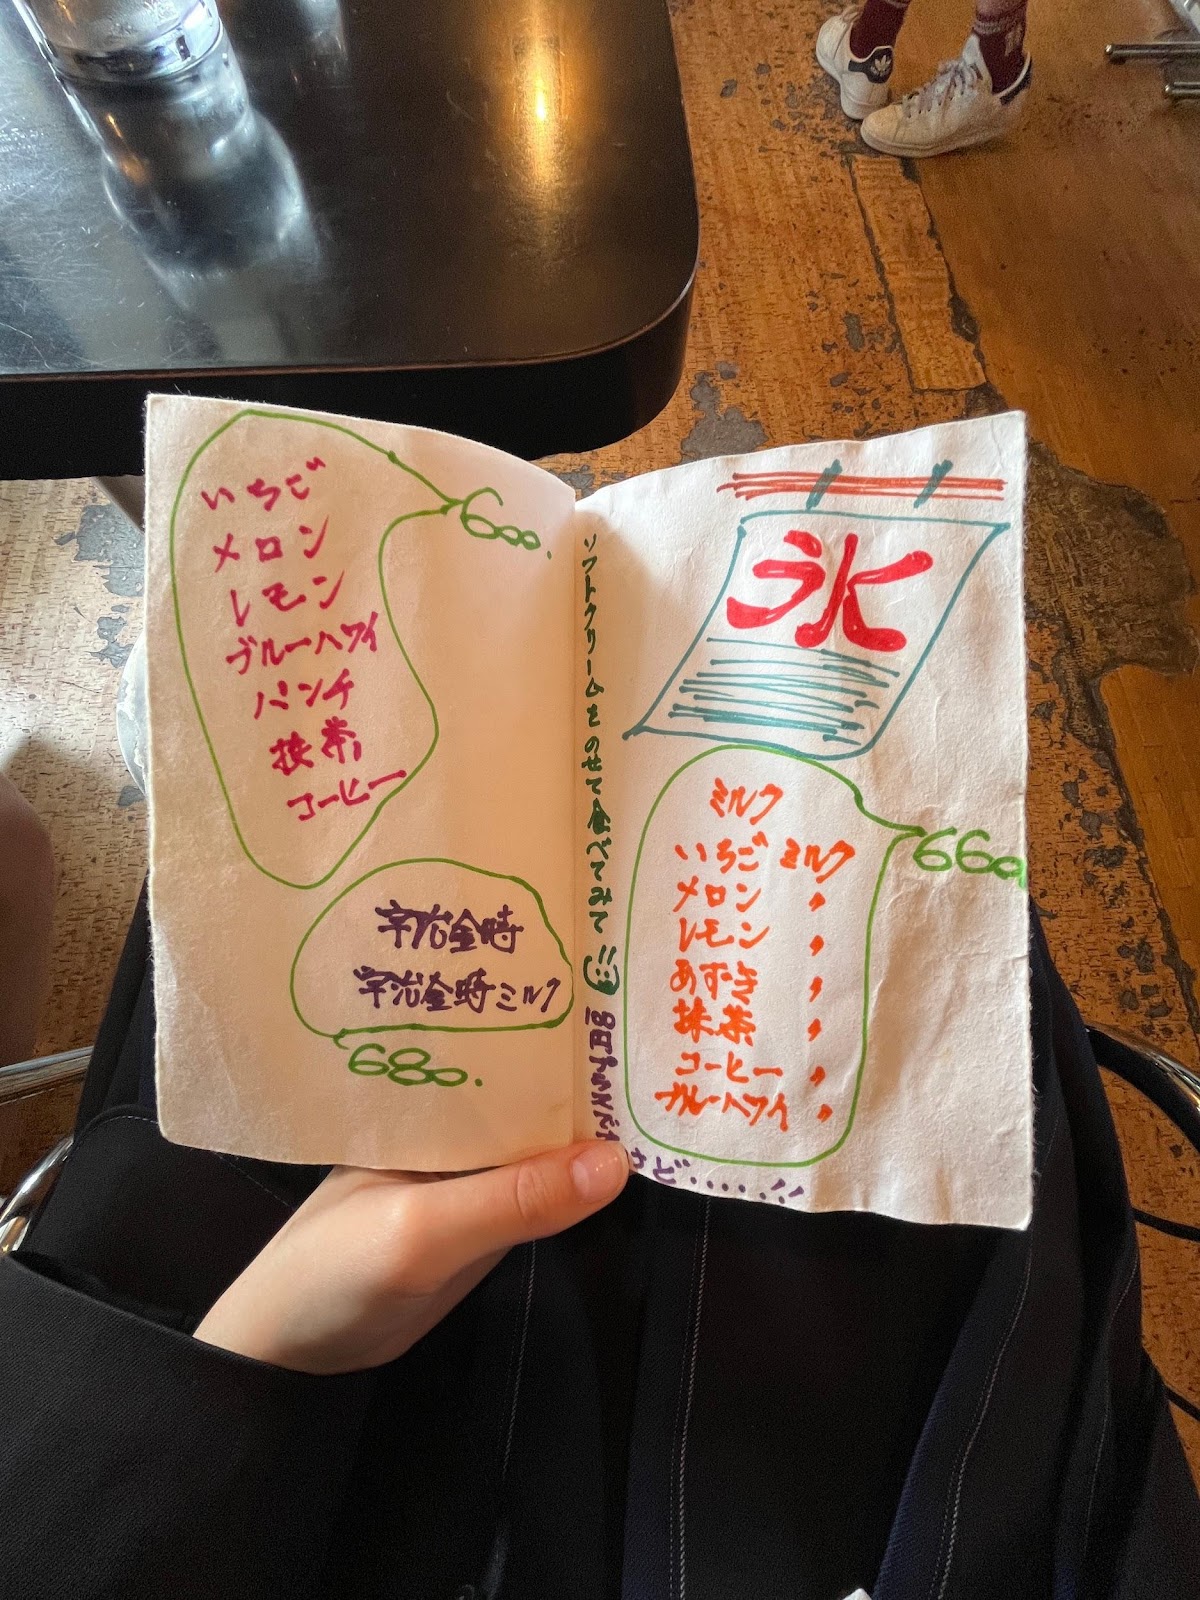 いちご
メロン
レモン
ブルーハワイ
パンチ
抹茶
コーヒー
600.
宇治金時
宇治金時ミルク
680.
ソフトクリームをのせて食べてみて
氷
ミルク
いちご ミルク
メロン 〃
レモン 〃
あずき 〃
抹茶 〃
コーヒー 〃
ブルーハワイ 〃
660